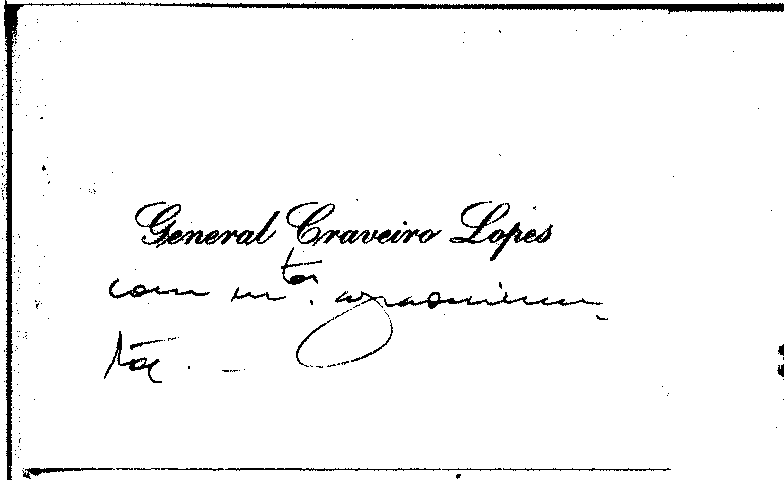 General Craveiro Lopes
com mtos. agradecimen-
tos. -